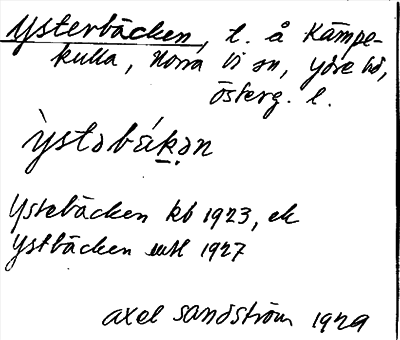 Ysterbäcken, t. å Kämpe-
kulla, Norra Vi sn, Ydre hd,
Österg. l.
ỳstəbák̠ən
Ystebäcken kb 1923, ek
Ystbäcken 1927
Axel Sandström 1929